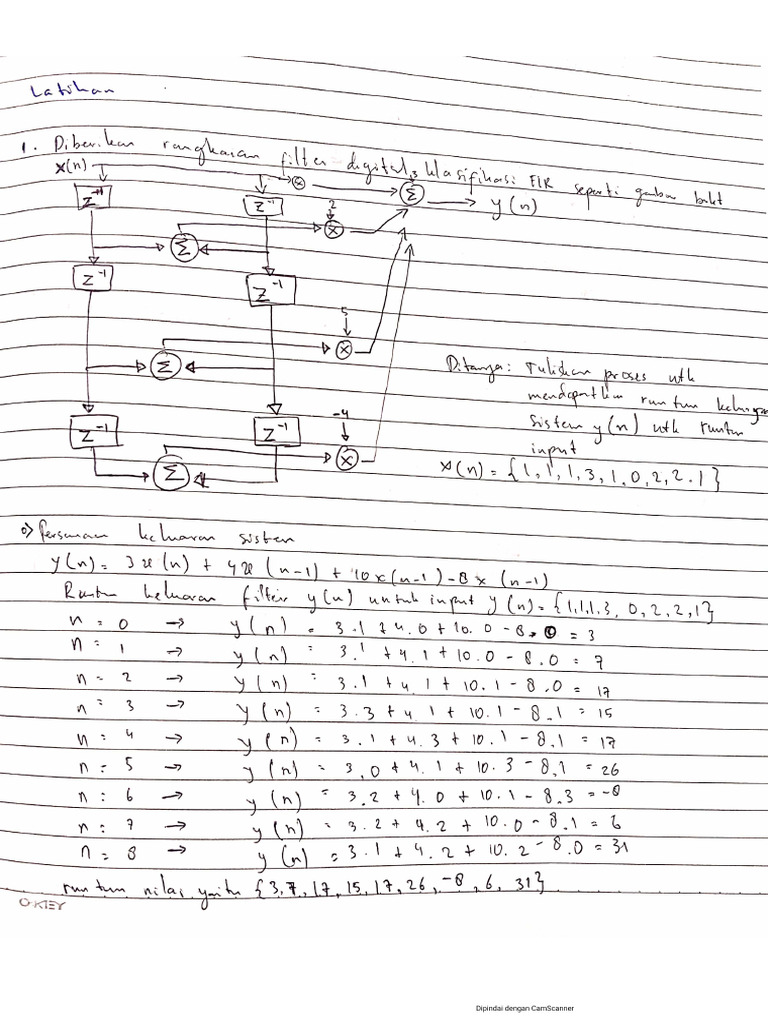 Latihan
1. Diberikan rangkaian filter digital, klasifikasi: FIR seperti gambar brkt
x(n)
3
Σ
y(n)
z⁻¹
z⁻¹
2
Σ
z⁻¹
z⁻¹
5
Σ
Ditanya: Tuliskan proses utk
mendapatkan runtun keluaran
sistem y(n) utk runtun
input
x(n) = {1, 1, 1, 3, 1, 0, 2, 2, 1}
z⁻¹
z⁻¹
-4
Σ
o) Persamaan keluaran sistem
y(n) = 3x(n) + 4x(n-1) + 10x(n-1) - 8x(n-1)
Runtun keluaran filter y(n) untuk input y(n) = {1,1,1,3, 0,2,2,1}
n = 0 → y(n) = 3.1 + 4.0 + 10.0 - 8.0 = 3
n = 1 → y(n) = 3.1 + 4.1 + 10.0 - 8.0 = 7
n = 2 → y(n) = 3.1 + 4.1 + 10.1 - 8.0 = 17
n = 3 → y(n) = 3.3 + 4.1 + 10.1 - 8.1 = 15
n = 4 → y(n) = 3.1 + 4.3 + 10.1 - 8.1 = 17
n = 5 → y(n) = 3.0 + 4.1 + 10.3 - 8.1 = 26
n = 6 → y(n) = 3.2 + 4.0 + 10.1 - 8.3 = -8
n = 7 → y(n) = 3.2 + 4.2 + 10.0 - 8.1 = 6
n = 8 → y(n) = 3.1 + 4.2 + 10.2 - 8.0 = 31
runtun nilai yaitu {3, 7, 17, 15, 17, 26, -8, 6, 31}
O-KIEY
Dipindai dengan CamScanner